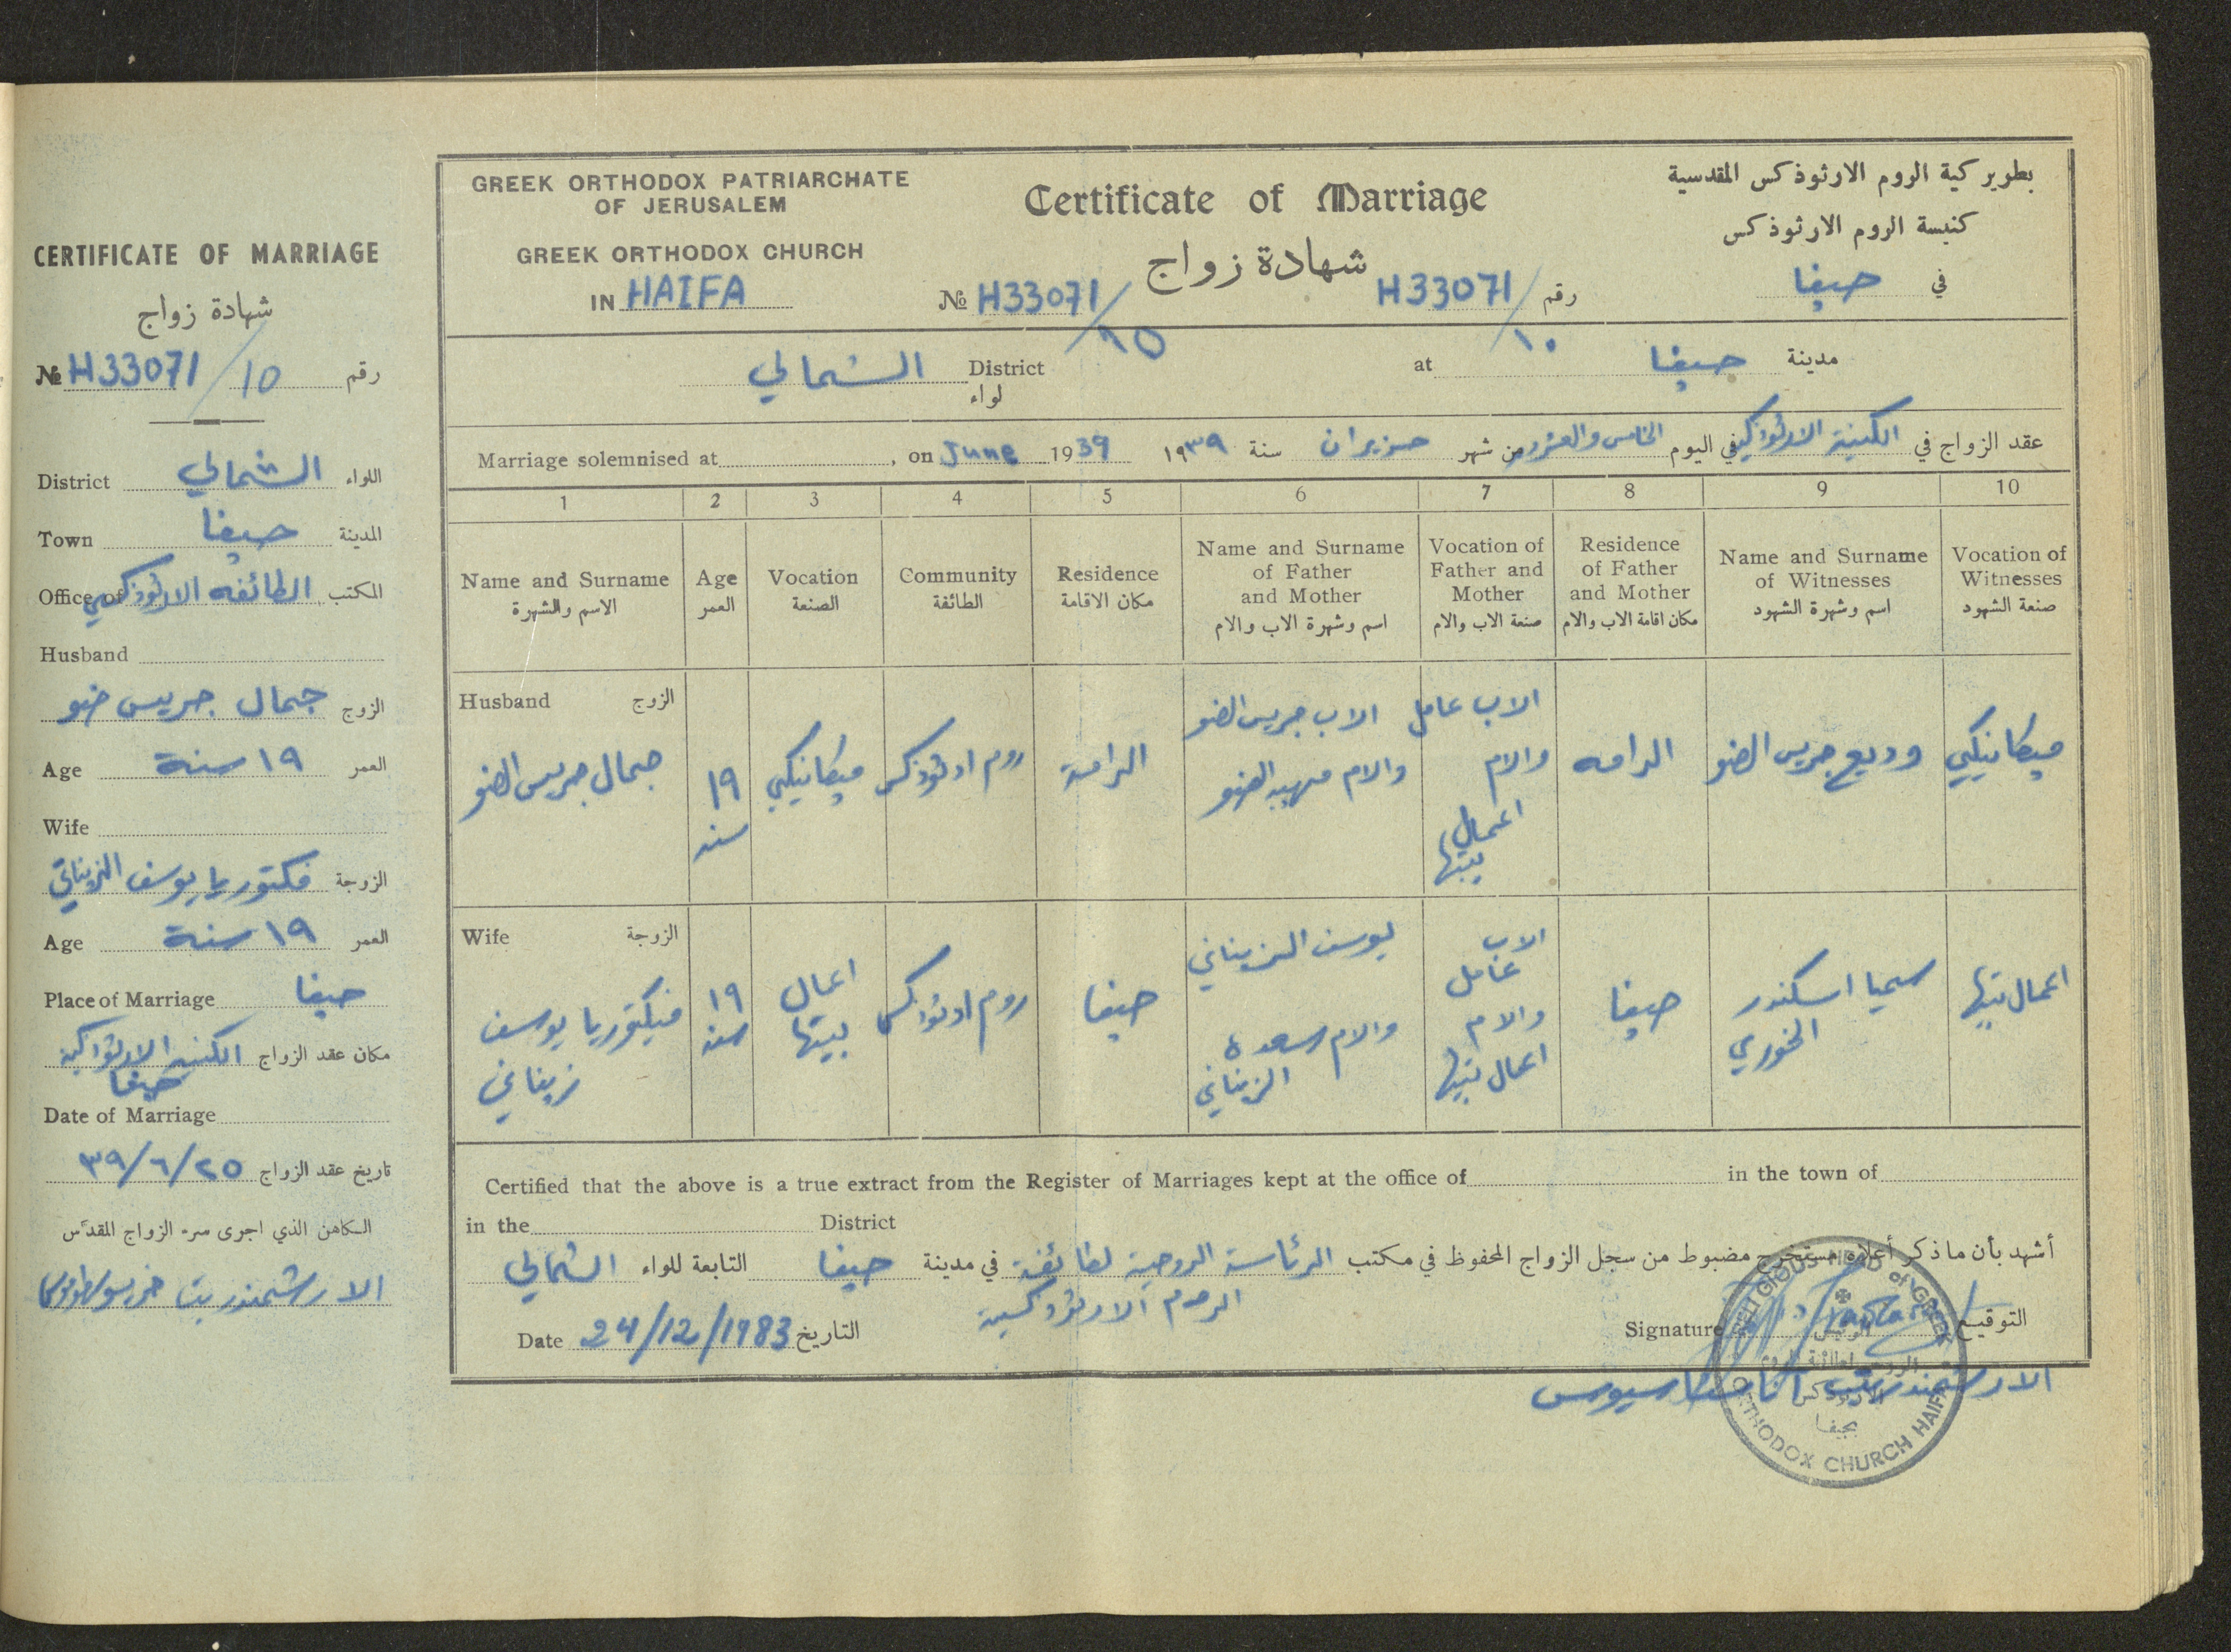 CERTIFICATE OF MARRIAGE
شهادة زواج
№ H33071/10 رقم
District الشمالي اللواء
Town حيفا المدينة
Office of الطائفه الارثوذكسي المكتب
Husband
الزوج جمال جريس ضو
Age ١٩ سنة العمر
Wife
الزوجة فكتوريا يوسف الزيناتي
Age ١٩ سنة العمر
Place of Marriage حيفا
مكان عقد الزواج الكنيسه الارثوذكسية
حيفا
Date of Marriage
تاريخ عقد الزواج ٢٥/٦/٣٩
الكاهن الذي اجرى سر الزواج المقدس
الارشمندريت
GREEK ORTHODOX PATRIARCHATE
OF JERUSALEM
GREEK ORTHODOX CHURCH
IN HAIFA
Certificate of Marriage
شهادة زواج
№ H33071/10
رقم H33071/١٠
بطريركية الروم الارثوذكس المقدسية
كنيسة الروم الارثوذكس
في حيفا
الشمالي District
لواء
at حيفا مدينة
Marriage solemnised at , on June 1939
عقد الزواج في الكنيسة الارثوذكسية في اليوم الخامس والعشرون من شهر حزيران سنة ١٩٣٩
1 2 3 4 5 6 7 8 9 10
Name and Surname
الاسم والشهرة
Age
العمر
Vocation
الصنعة
Community
الطائفة
Residence
مكان الاقامة
Name and Surname
of Father
and Mother
اسم وشهرة الاب والام
Vocation of
Father and
Mother
صنعة الاب والام
Residence
of Father
and Mother
مكان اقامة الاب والام
Name and Surname
of Witnesses
اسم وشهرة الشهود
Vocation of
Witnesses
صنعة الشهود
Husband الزوج
جمال جريس الضو
١٩
سنه
ميكانيكي
روم ارثوذكس
الرامة
الاب جريس الضو
والام مهيبه الضو
الاب عامل
والام
اعمال
بيتها
الرامه
وديع جريس الضو
ميكانيكي
Wife الزوجة
فيكتوريا يوسف
زيناتي
١٩
سنه
اعمال
بيتها
روم ارثوذكس
حيفا
يوسف الزيناتي
والام سعده
الزيناتي
الاب
عامل
والام
اعمال بيتها
حيفا
اسكندر
الخوري
اعمال بيتها
Certified that the above is a true extract from the Register of Marriages kept at the office of in the town of
in the District
أشهد بأن ما ذكر أعلاه مستخرج مضبوط من سجل الزواج المحفوظ في مكتب الرئاسة الروحية لطائفة في مدينة حيفا التابعة للواء الشمالي
الروم الارثوذكسية
Date 24/12/1983 التاريخ
Signature التوقيع
الارشمندريت اناستاسيوس
RELIGIOUS HEAD of GREEK
ORTHODOX CHURCH HAIFA
بحيفا